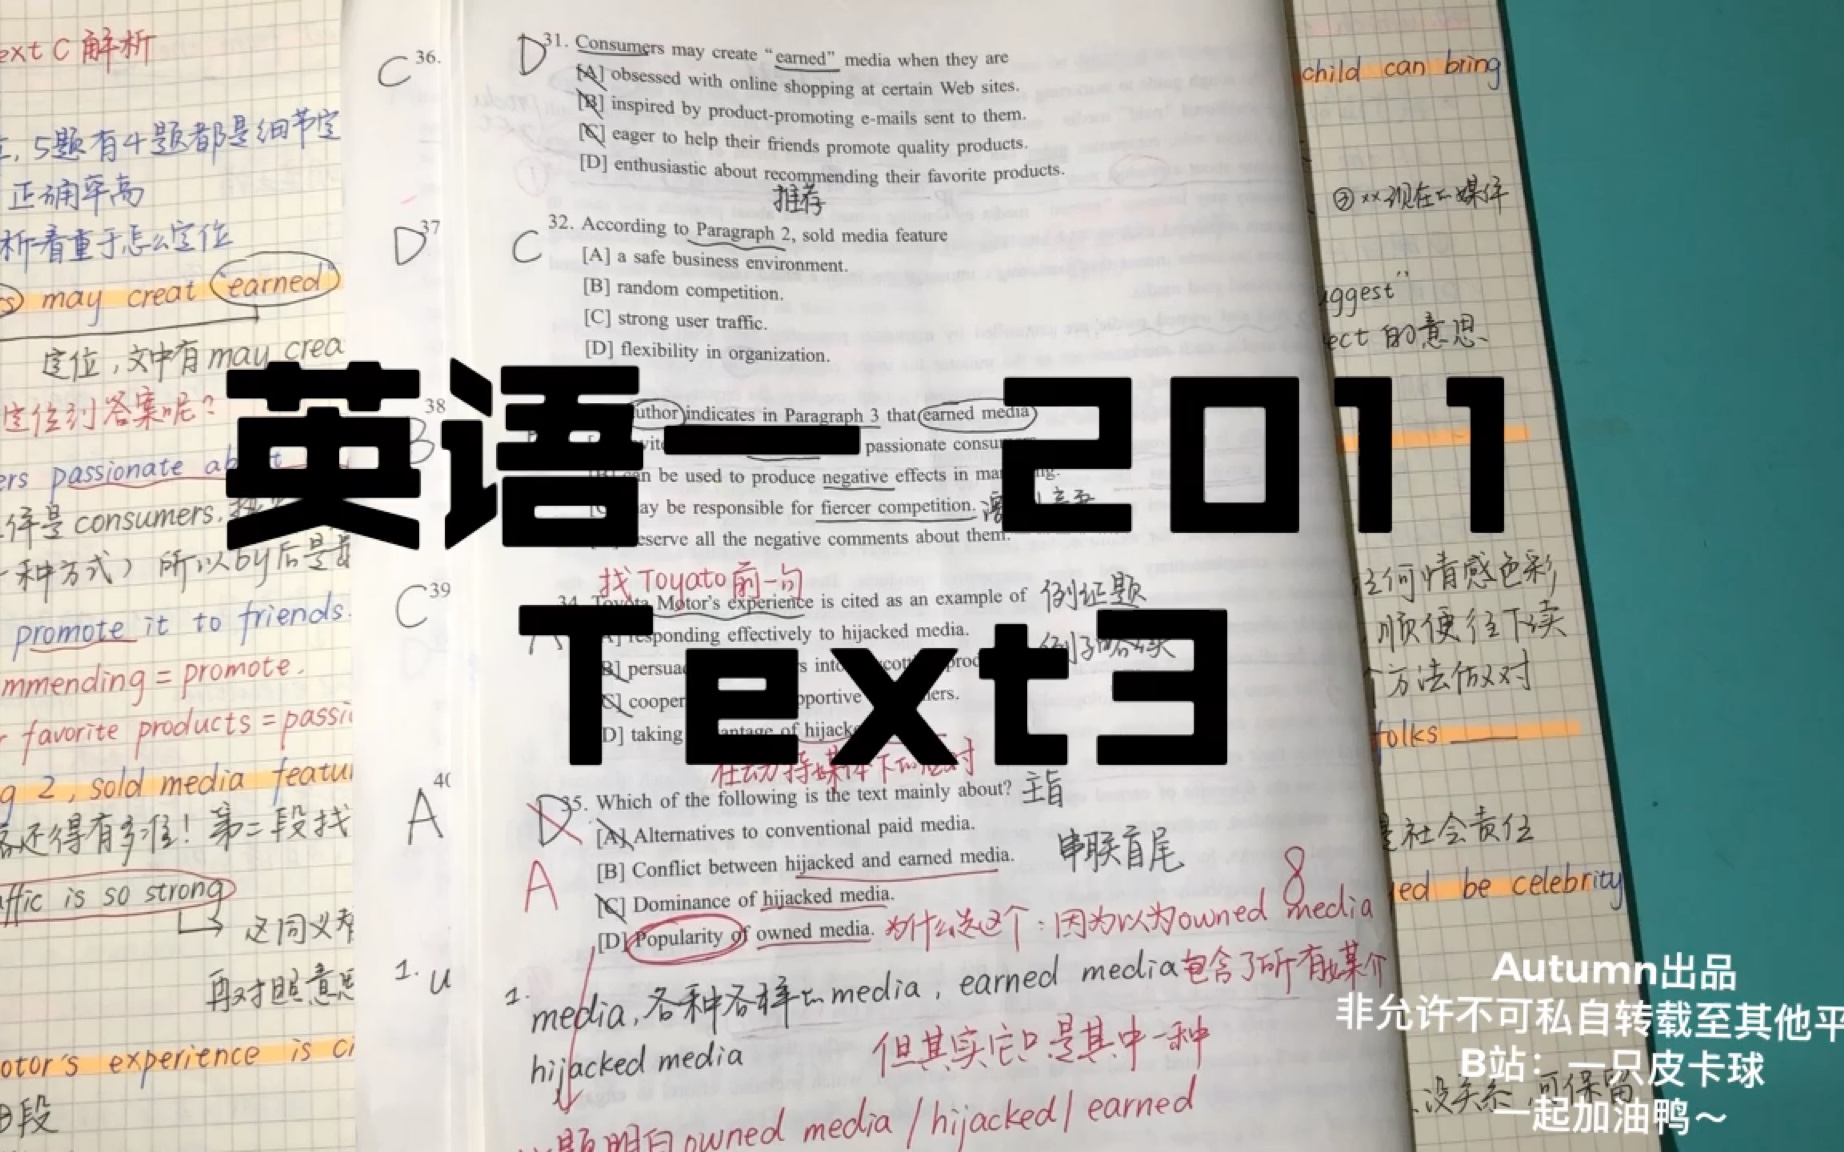 ext C 解析
5题有4题都是细节定
正确率高
析看重于怎么定位
may creat "earned"
定位,文中有may crea
定位到答案呢?
ers passionate ab
consumers,
一种方式) 所以by后是
promote it to friends.
mmending = promote.
favorite products = passi
g 2, sold media featu
还得有多难! 第二段找
ffic is so strong
这同义
再对照意思
otor's experience is ci
B段
C 36.
D 37
38
B
C 39
A 40
1. u
D 31. Consumers may create "earned" media when they are
[A] obsessed with online shopping at certain Web sites.
[B] inspired by product-promoting e-mails sent to them.
[C] eager to help their friends promote quality products.
[D] enthusiastic about recommending their favorite products.
推荐
C 32. According to Paragraph 2, sold media feature
[A] a safe business environment.
[B] random competition.
[C] strong user traffic.
[D] flexibility in organization.
uthor indicates in Paragraph 3 that earned media
passionate consu
an be used to produce negative effects in ma
ay be responsible for fiercer competition.
eserve all the negative comments about them.
英语一 2011
Text3
找Toyato前一句
34. Toyota Motor's experience is cited as an example of 例证题
A] responding effectively to hijacked media.
[B] persua
[C] cooper
D] taking
35. Which of the following is the text mainly about? 主旨
D
[A] Alternatives to conventional paid media.
[B] Conflict between hijacked and earned media. 串联首尾
A
[C] Dominance of hijacked media.
[D] Popularity of owned media. 为什么选这个:因为以为owned media
8
1. media,各种各样的media, earned media 包含了所有媒介
hijacked media 但其实它只是其中一种
owned media / hijacked / earned
child can bring
② xx现在的媒体
uggest"
ect 的意思
任何情感色彩
顺便往下读
个方法做对
folks
是社会责任
ed be celebrity
没关系,可保留
Autumn出品
非允许不可私自转载至其他平
B站:一只皮卡球
一起加油鸭～